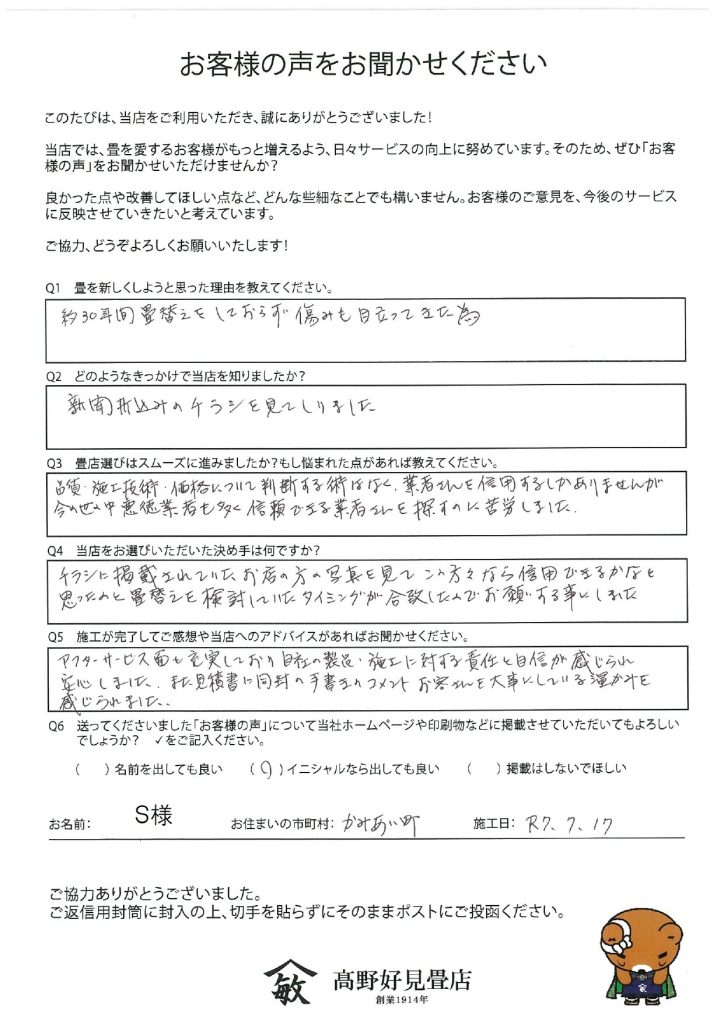 お客様の声をお聞かせください
このたびは、当店をご利用いただき、誠にありがとうございました！
当店では、畳を愛するお客様がもっと増えるよう、日々サービスの向上に努めています。そのため、ぜひ「お客
様の声」をお聞かせいただけませんか？
良かった点や改善してほしい点など、どんな些細なことでも構いません。お客様のご意見を、今後のサービス
に反映させていきたいと考えています。
ご協力、どうぞよろしくお願いいたします！
Q1 畳を新しくしようと思った理由を教えてください。
約30年間畳替えをしておらず傷みも目立ってきた為
Q2 どのようなきっかけで当店を知りましたか？
新聞折込みのチラシを見てしりました
Q3 畳店選びはスムーズに進みましたか？もし悩まれた点があれば教えてください。
品質・施工技術・価格について判断する術はなく、業者さんを信用するしかありませんが
今の世の中悪徳業者も多く信頼できる業者さんを探すのに苦労しました.
Q4 当店をお選びいただいた決め手は何ですか？
チラシに掲載されていたお店の方の写真を見てこの方々なら信用できるかなと
思ったのと畳替えを検討していたタイミングが合致したのでお願いする事にしました
Q5 施工が完了してご感想や当店へのアドバイスがあればお聞かせください。
アフターサービス面も充実しており自社の製品・施工に対する責任と自信が感じられ
安心しました. また見積書に同封の手書きのコメント お客さんを大事にしている温かみを
感じられました..
Q6 送ってくださいました「お客様の声」について当社ホームページや印刷物などに掲載させていただいてもよろしい
でしょうか？ ✓をご記入ください。
（ ）名前を出しても良い （✓）イニシャルなら出しても良い （ ）掲載はしないでほしい
お名前： S様 お住まいの市町村： かみあい町 施工日： R7. 7. 17
ご協力ありがとうございました。
ご返信用封筒に封入の上、切手を貼らずにそのままポストにご投函ください。
敏 髙野好見畳店
創業1914年